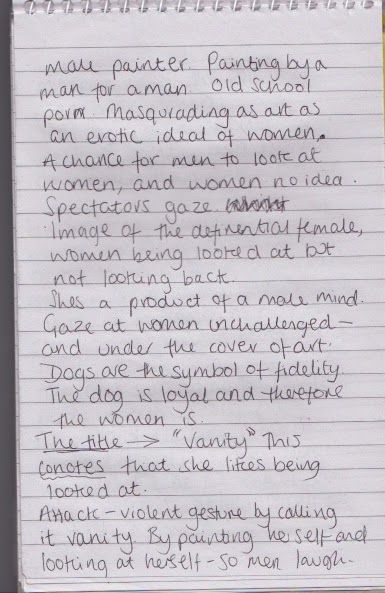 male painter. Painting by a
man for a man. Old school
porn. Masqurading as art as
an erotic ideal of women.
A chance for men to look at
women, and women no idea.
Spectators gaze
Image of the defrential female,
women being looked at but
not looking back.
Shes a product of a male mind.
Gaze at women unchallenged -
and under the cover of art.
Dogs are the symbol of fidelity
The dog is loyal and therefore
the women is.
The title → "Vanity" This
conotes that she likes being
looked at.
Attack - violent gesture by calling
it vanity By painting her self and
looking at herself - so men laugh.